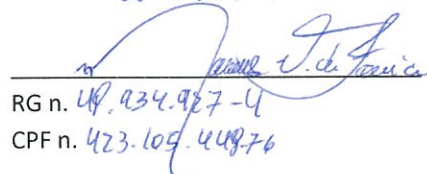 V. de
RG n. 49.934.927-4
CPF n. 423.105.448-76